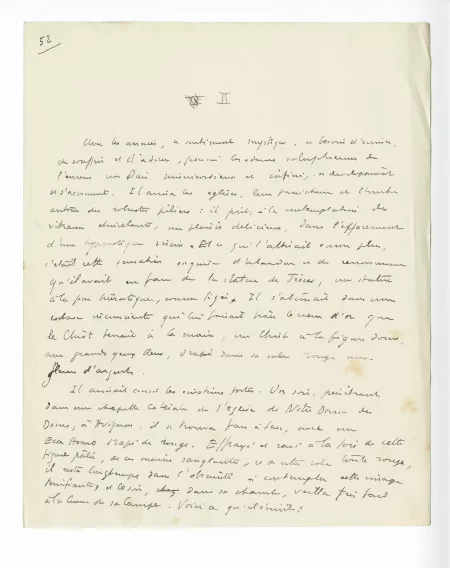 52
II
Avec les années, ce sentiment mystique, ce besoin d'aimer,
de souffrir et d'adorer, parmi les odeurs voluptueuses de
l'encens un Dieu miséricordieux et infini, se développèrent
et s'accrurent. Il aima les églises, leur fraîcheur et l'ombre
autour des robustes piliers : il prit, à la contemplation des
vitraux étincelants, un plaisir délicieux, dans l'
d'une hypnotique vision. Et ce qui l'attirait encore plus,
c'était cette sensation exquise d'abandon et de renoncement
qu'il avait en face de la statue de Jésus, une statue
à la pose hiératique, comme figée. Il s'abîmait dans une
extase que lui faisait naître le cœur d'or que
le Christ tenait à la main, un Christ à la figure douce,
aux grands yeux bleus, drapé dans sa robe rouge aux
fleurs d'argent.
Il aimait aussi les émotions fortes. Un soir, pénétrant
dans une chapelle latérale de l'église de Notre Dame des
Doms, à Avignon, il se trouva face à face, avec un
Ecce Homo drapé de rouge. Effrayé et ravi à la fois de cette
figure pâle, de ces mains sanglantes, et de cette robe toute rouge,
il resta longtemps dans l'obscurité à contempler cette image
terrifiante et ce soir, dans sa chambre, veilla fort tard
à la lueur de sa lampe. Voici ce qu'il écrivit :